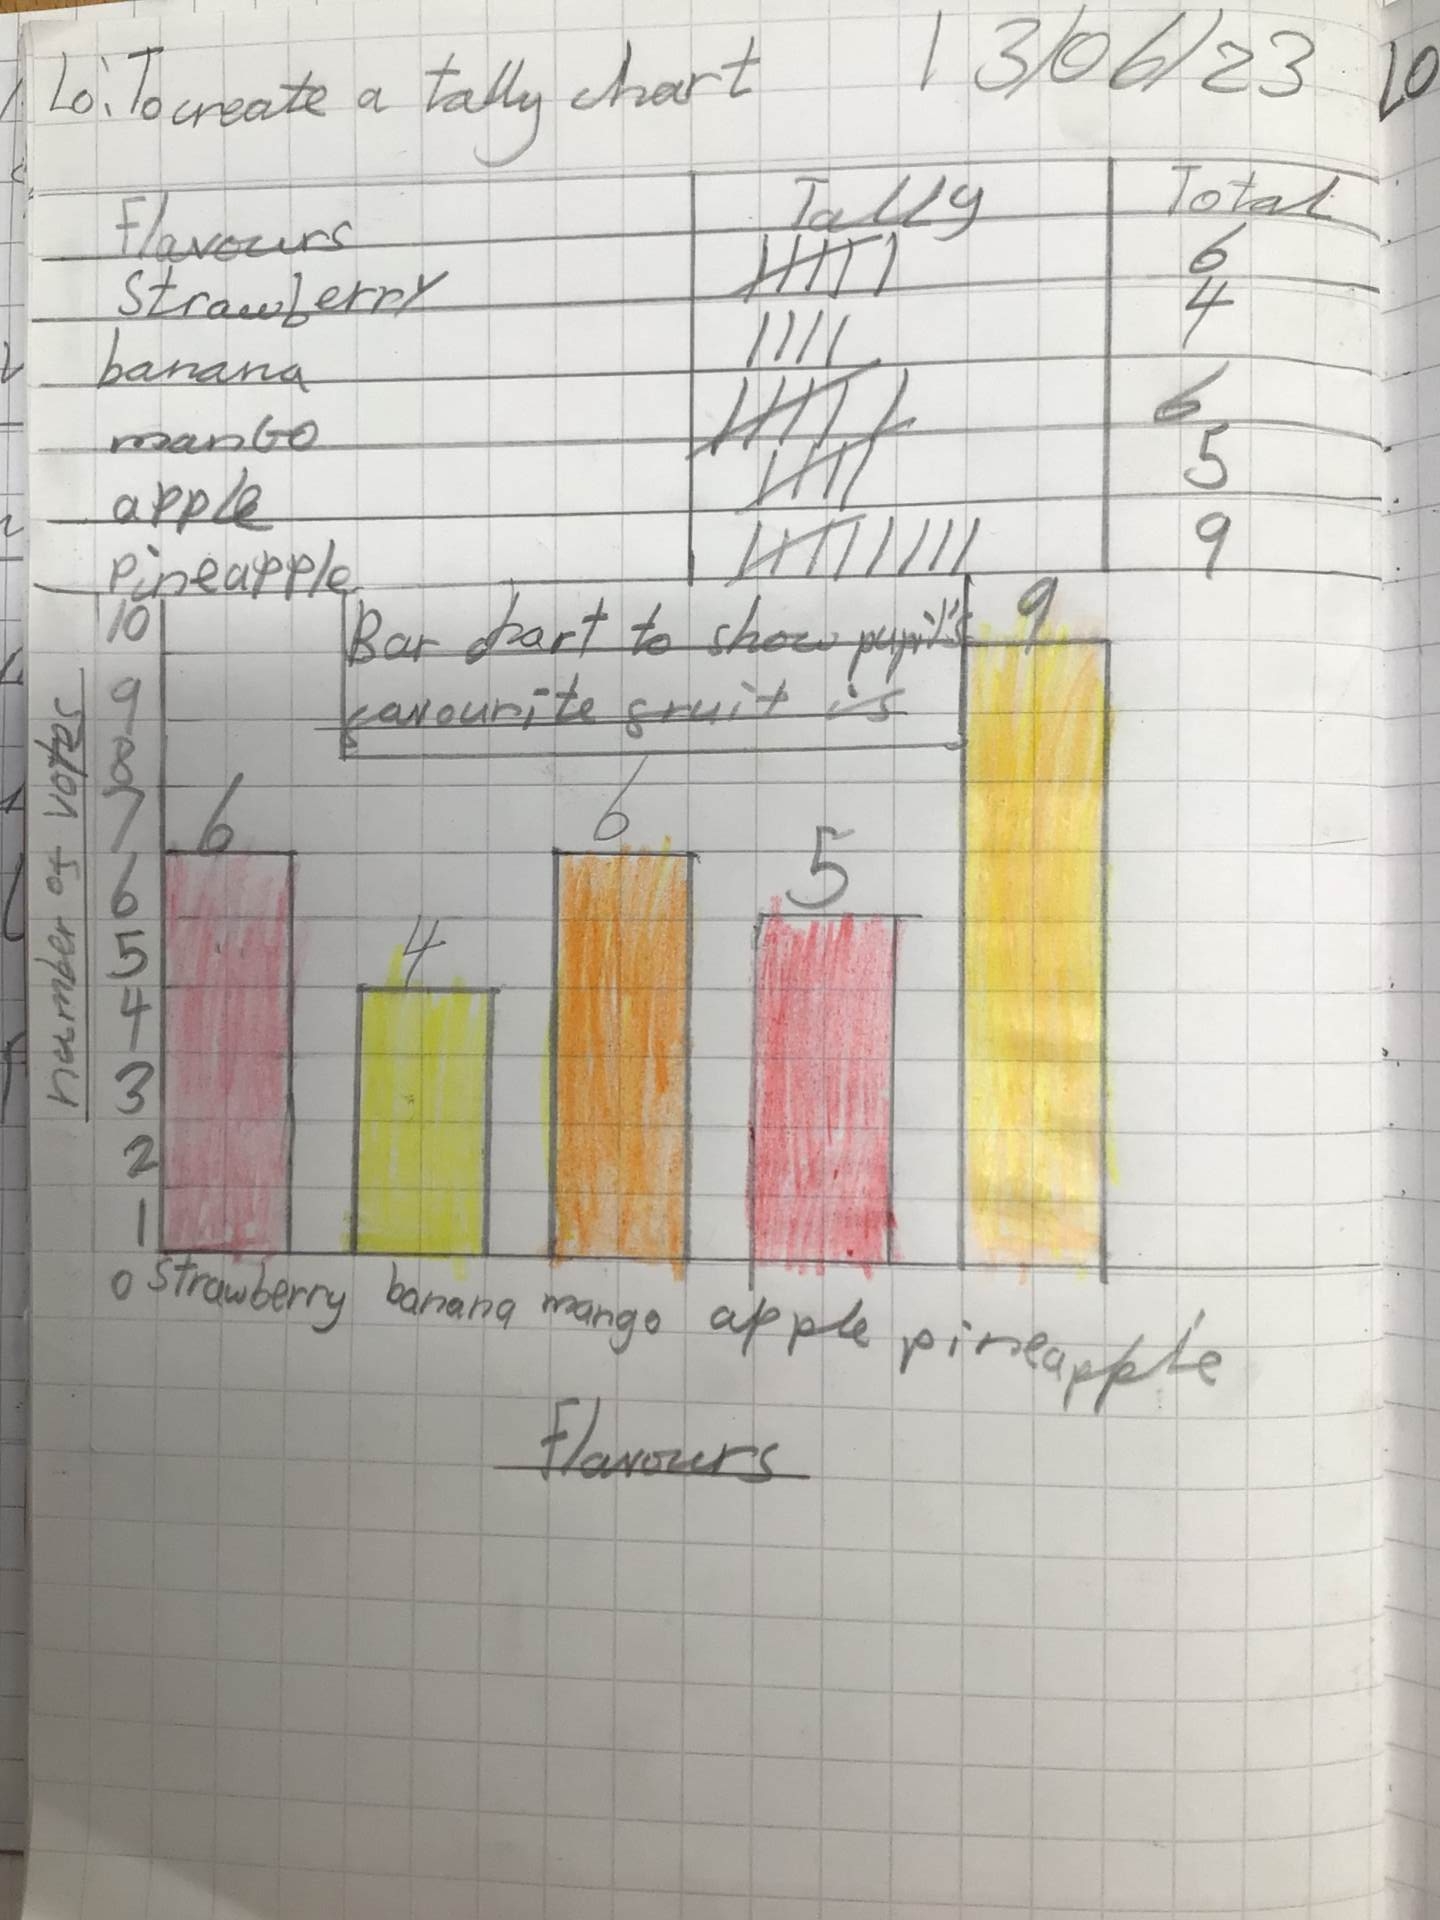 Lo: To create a tally chart 13/06/23
Flavours Tally Total
Strawberry 6
banana 4
manGo 6
apple 5
Pineapple 9
Bar chart to show pupil's
favourite fruit is
number of votes
10
9
8
7
6
5
4
3
2
1
0
6
4
6
5
9
strawberry banana mango apple pineapple
Flavours